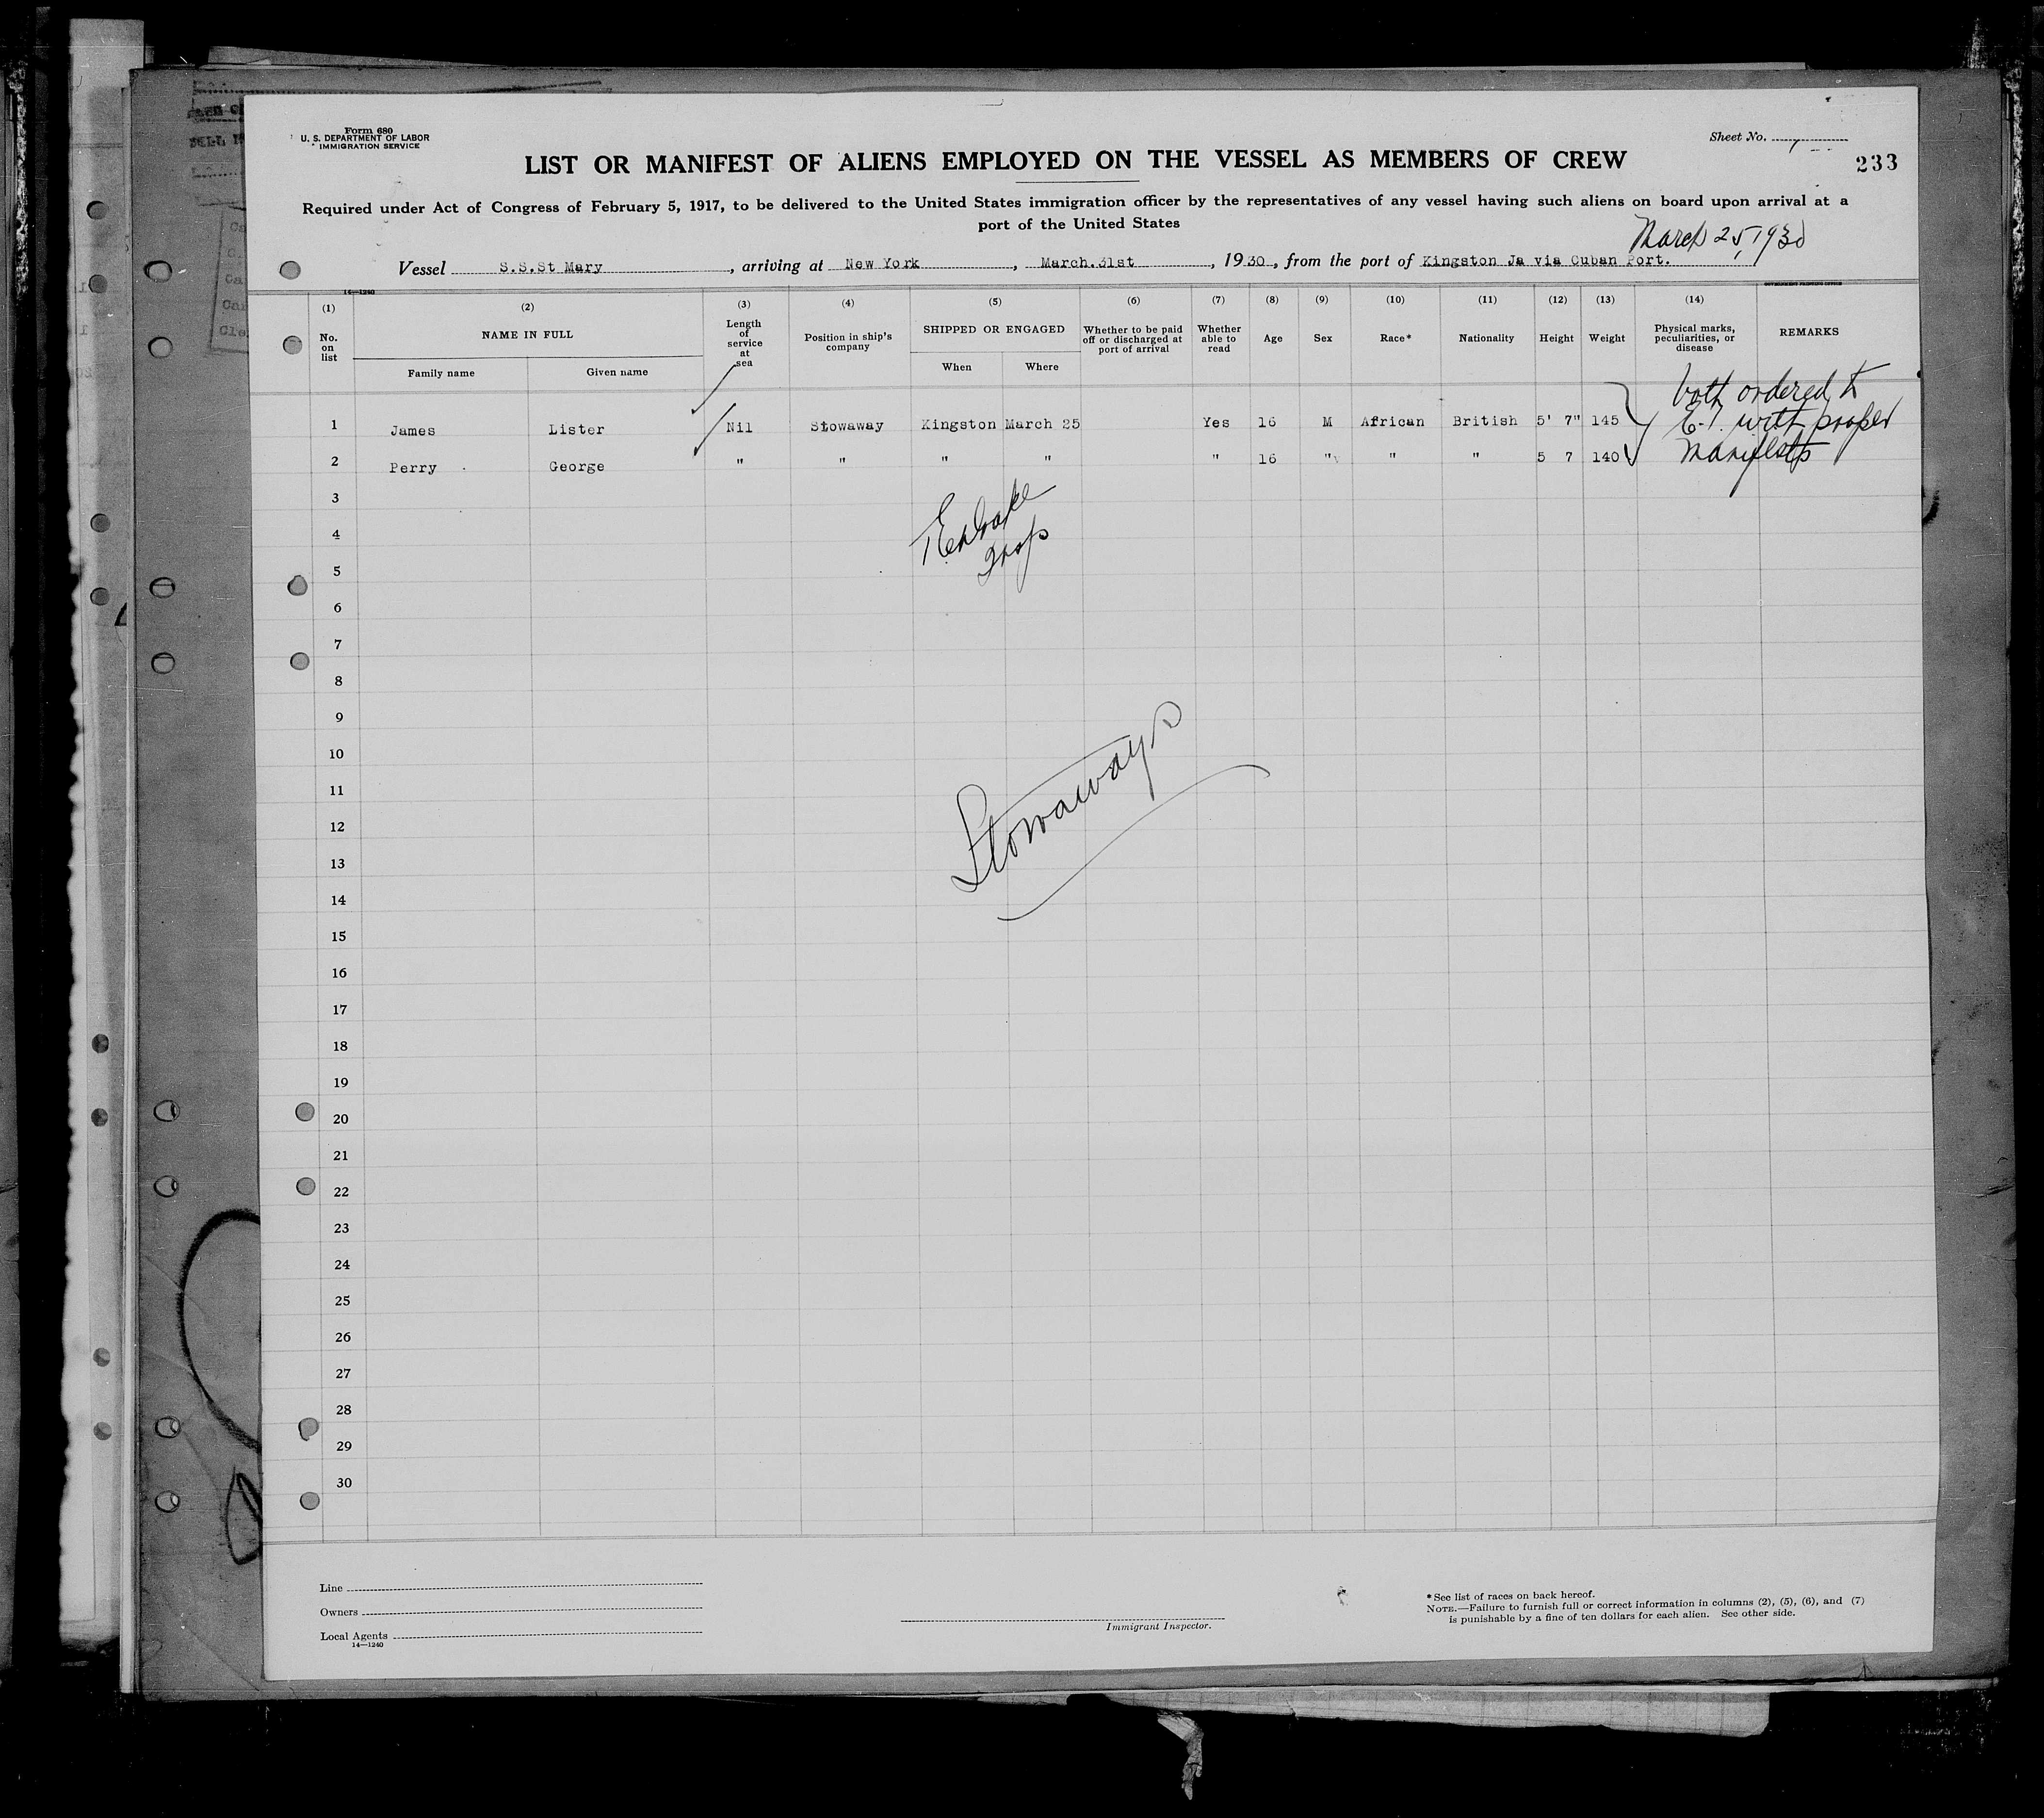 Form 680
U. S. DEPARTMENT OF LABOR
IMMIGRATION SERVICE
Sheet No.
LIST OR MANIFEST OF ALIENS EMPLOYED ON THE VESSEL AS MEMBERS OF CREW
233
Required under Act of Congress of February 5, 1917, to be delivered to the United States immigration officer by the representatives of any vessel having such aliens on board upon arrival at a
port of the United States
March 25, 1930
Vessel S.S.St Mary, arriving at New York, March.31st, 1930, from the port of Kingston Ja via Cuban Port.
14—1240
GOVERNMENT PRINTING OFFICE
(1) (2) (3) (4) (5) (6) (7) (8) (9) (10) (11) (12) (13) (14)
No. on list
NAME IN FULL
Family name
Given name
Length of service at sea
Position in ship's company
SHIPPED OR ENGAGED
When
Where
Whether to be paid off or discharged at port of arrival
Whether able to read
Age
Sex
Race*
Nationality
Height
Weight
Physical marks, peculiarities, or disease
REMARKS
1 James Lister Nil Stowaway Kingston March 25 Yes 16 M African British 5' 7" 145
2 Perry George " " " " " 16 " " " 5 7 140
both ordered to
E.I. with proper
manifests
3
4
5
6
7
8
9
10
11
12
13
14
15
16
17
18
19
20
21
22
23
24
25
26
27
28
29
30
Stowaways
Line
Owners
Local Agents
14—1240
Immigrant Inspector.
* See list of races on back hereof.
NOTE.—Failure to furnish full or correct information in columns (2), (5), (6), and (7)
is punishable by a fine of ten dollars for each alien. See other side.